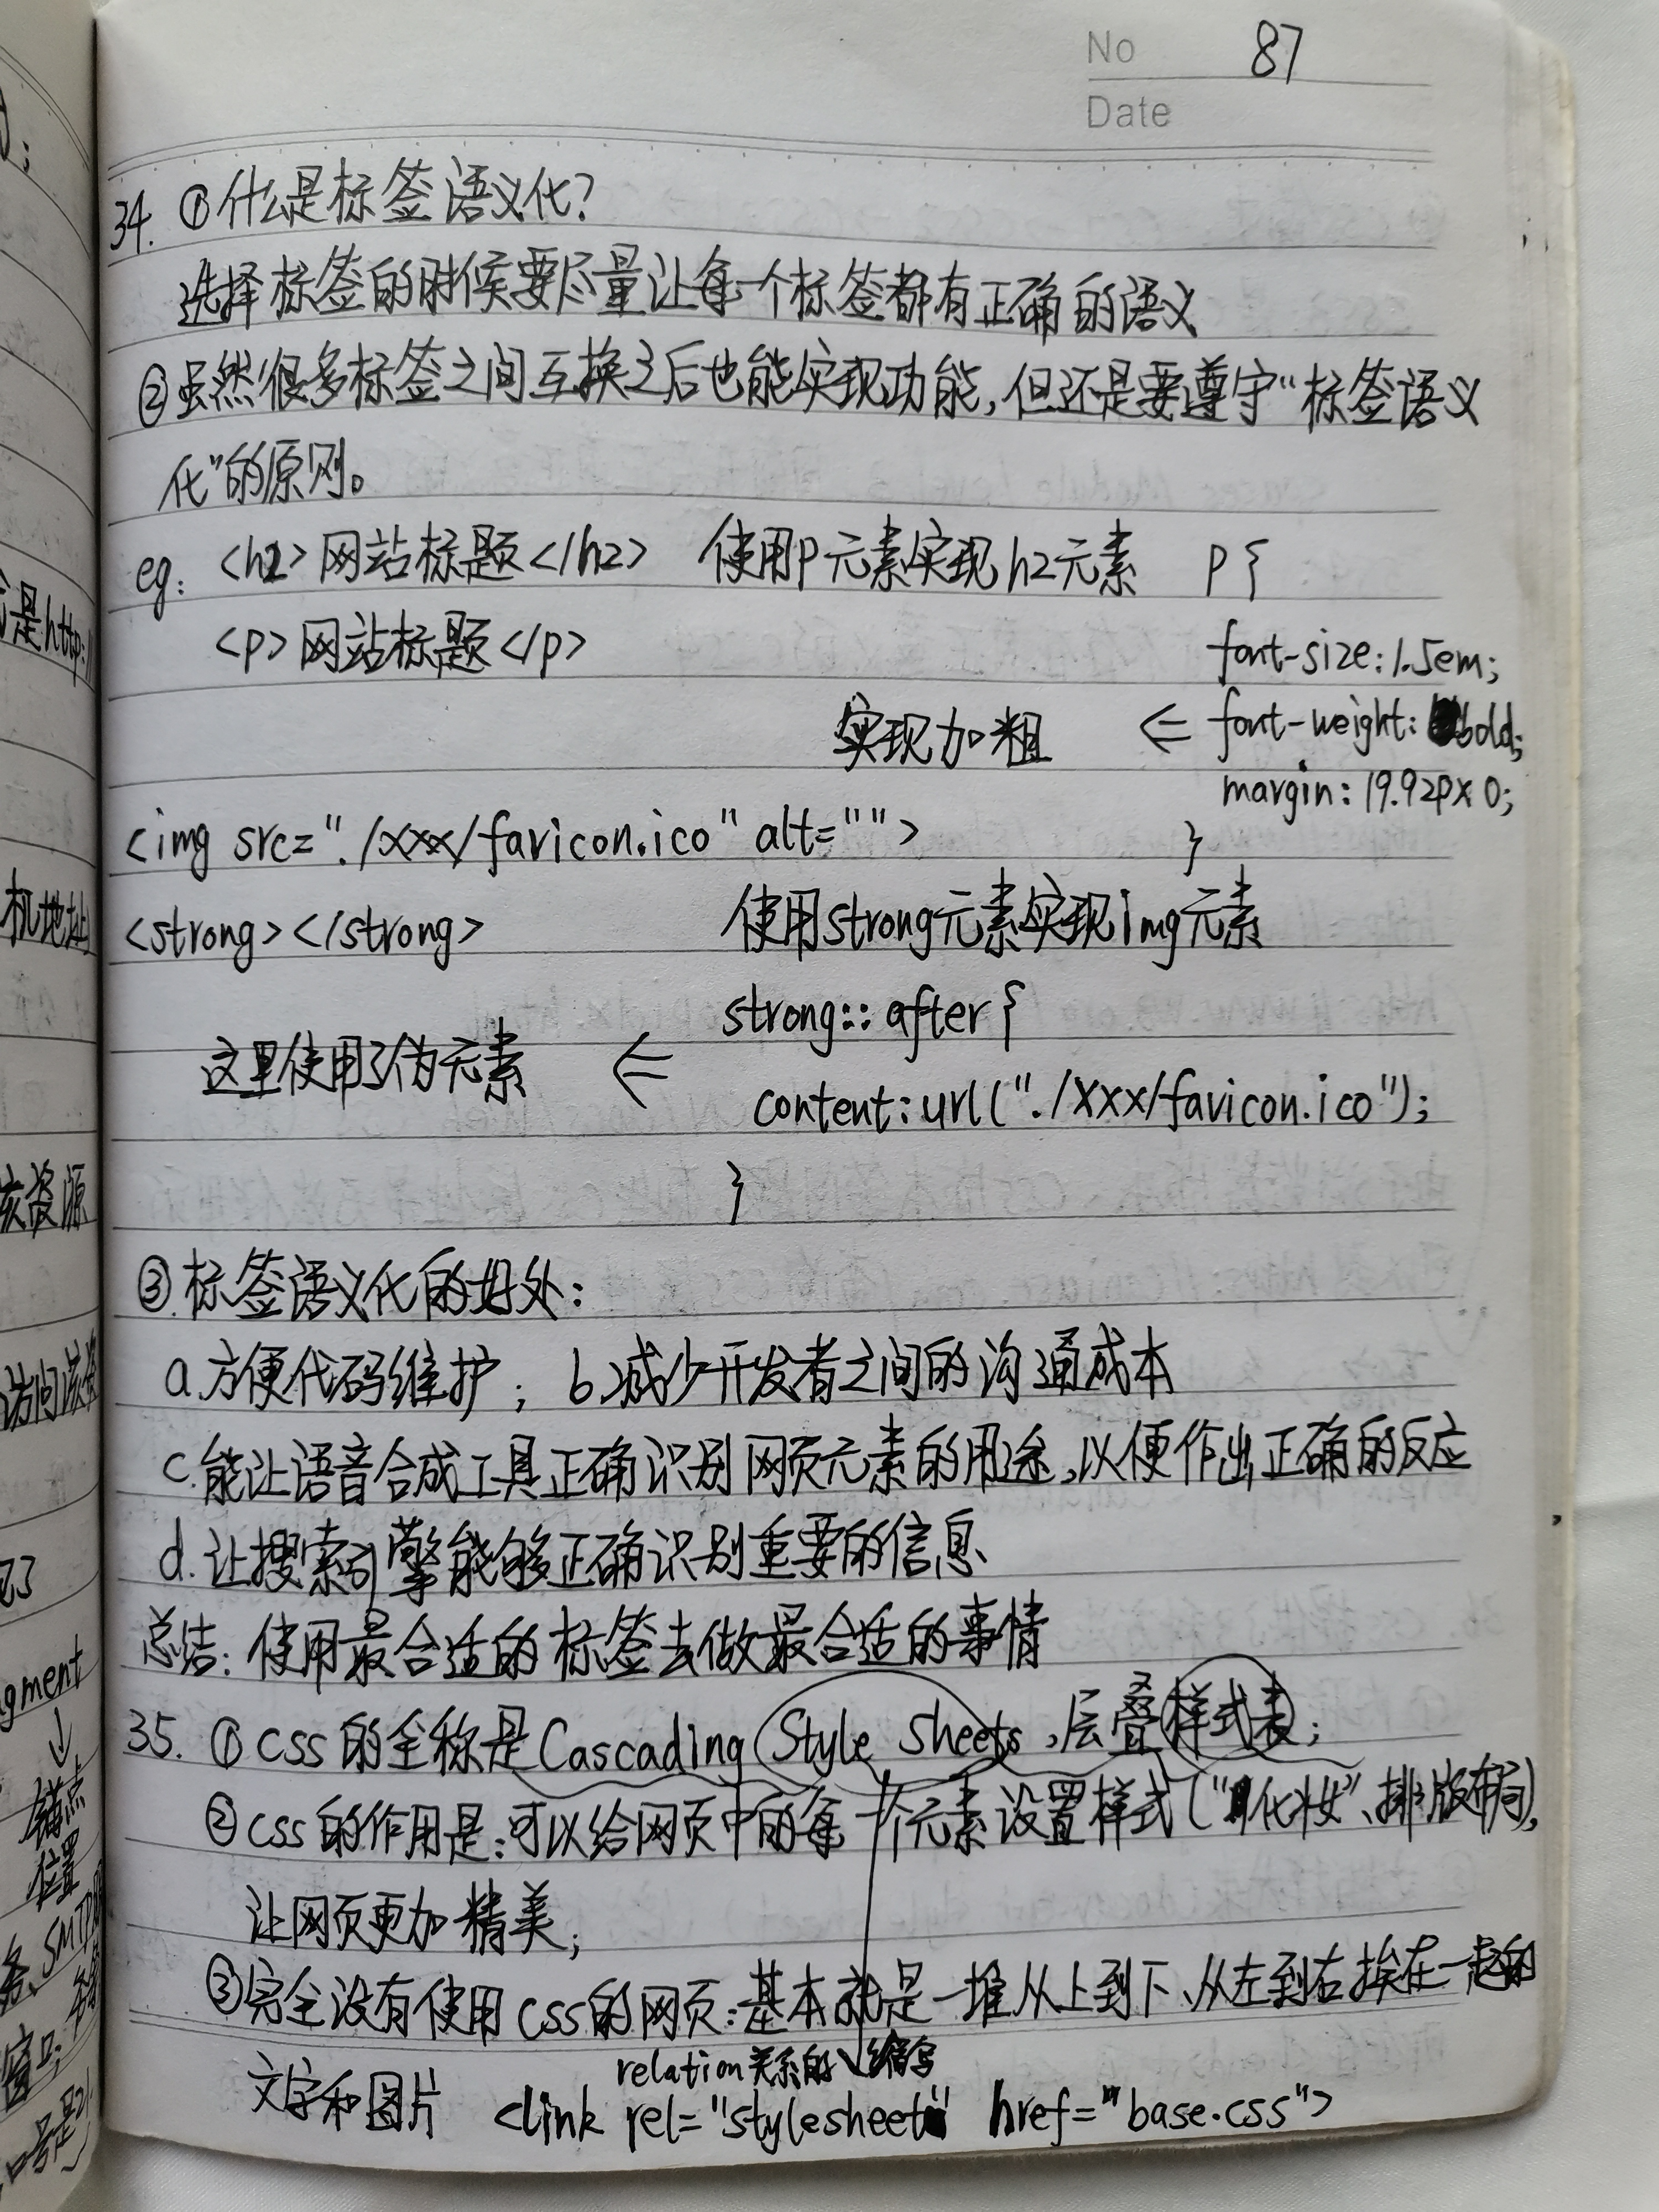 No 87
Date
34. ①什么是标签语义化?
选择标签的时候要尽量让每一个标签都有正确的语义
②虽然很多标签之间互换之后也能实现功能,但还是要遵守“标签语义
化”的原则。
eg: <h2>网站标题</h2> 使用p元素实现h2元素 p{
<p>网站标题</p>
font-size:1.5em;
实现加粗 ⇐ font-weight: bold;
margin: 19.92px 0;
<img src="./xxx/favicon.ico" alt=""> }
<strong></strong> 使用strong元素实现img元素
strong::after{
这里使用了伪元素 ⇐
content:url("./xxx/favicon.ico");
}
③.标签语义化的好处:
a.方便代码维护; b.减少开发者之间的沟通成本
c.能让语音合成工具正确识别网页元素的用途,以便作出正确的反应
d.让搜索引擎能够正确识别重要的信息
总结:使用最合适的标签去做最合适的事情
35. ①css的全称是Cascading Style Sheets,层叠样式表;
②css的作用是:可以给网页中的每一个元素设置样式(“化妆”、排版布局),
让网页更加精美;
③完全没有使用css的网页:基本就是一堆从上到下、从左到右挨在一起的
relation关系的缩写
文字和图片 <link rel="stylesheet" href="base.css">
;
是http:/
机地址
该资源
访问该资
gment
↓
锚点
位置
SMTP
窗口;
口号是21